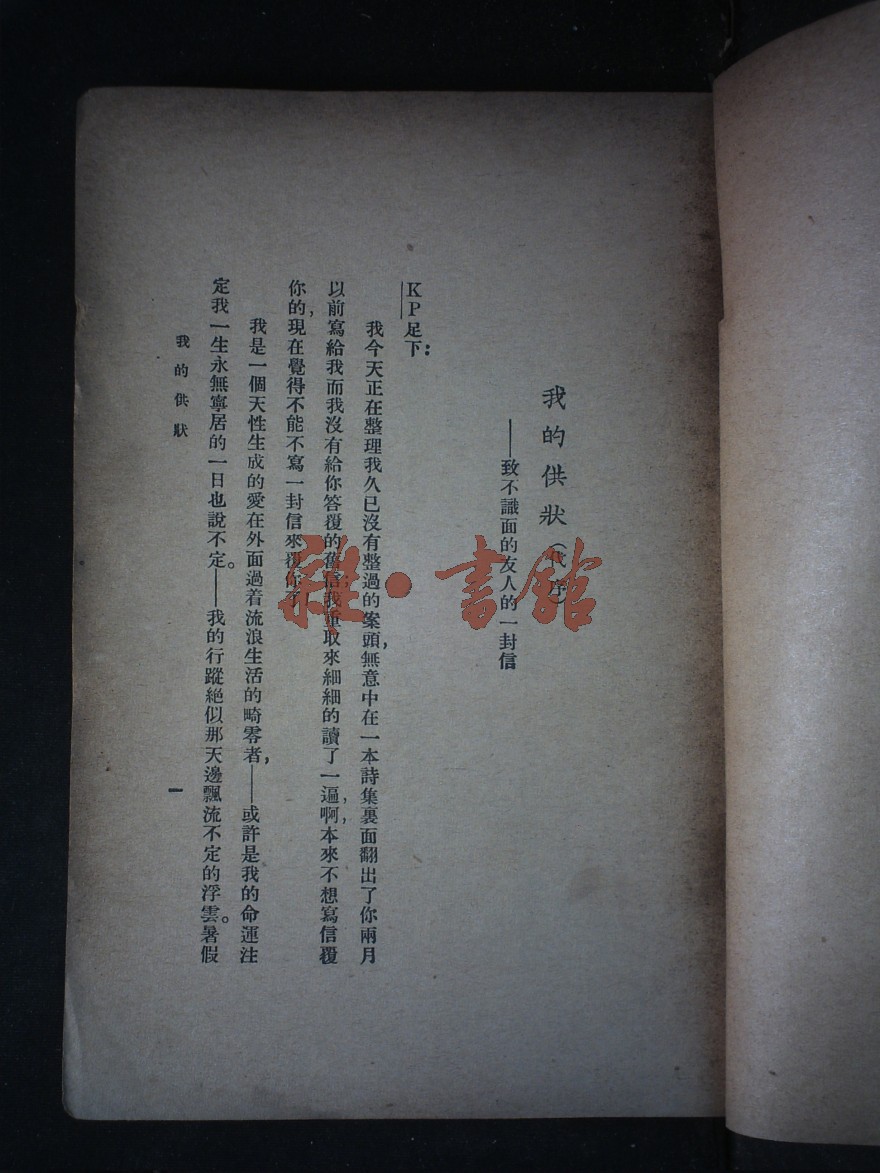 我的供狀（代序）
——致不識面的友人的一封信
KP足下：
我今天正在整理我久已沒有整過的案頭，無意中在一本詩集裏面翻出了你兩月
以前寫給我而我沒有給你答覆的舊信；我重取來細細的讀了一遍，啊，本來不想寫信覆
你的，現在覺得不能不寫一封信來覆你了
我是一個天性生成的愛在外面過着流浪生活的畸零者，——或許是我的命運注
定我一生永無寧居的一日也說不定。——我的行蹤絕似那天邊飄流不定的浮雲。暑假
我的供狀
一
雜·書館